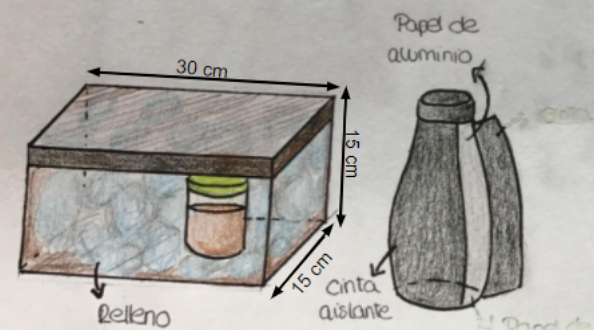 30 cm
15 cm
15 cm
Relleno
Papel de
aluminio
cinta
aislante